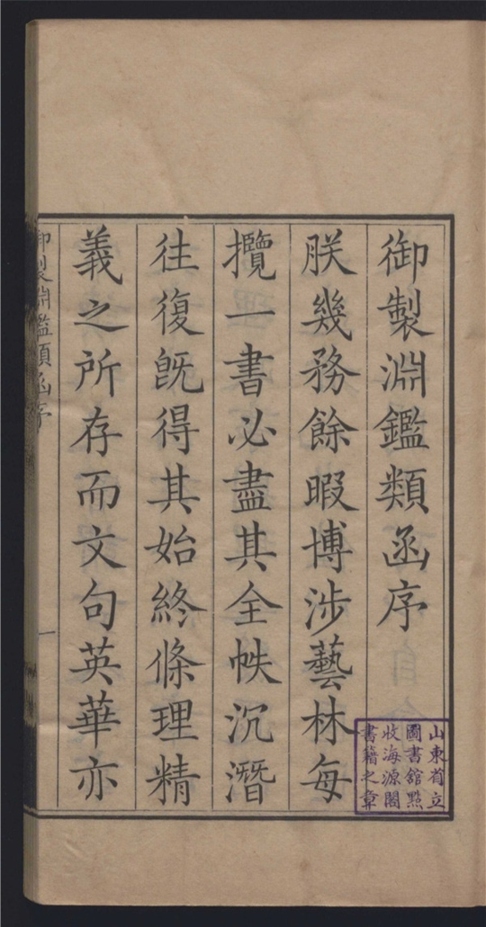 御製淵鑑類函序
朕幾務餘暇博涉藝林每
攬一書必盡其全帙沉潛
往復旣得其始終條理精
義之所存而文句英華亦
御製淵鑑類函序
一
山東省立
圖書館點
收海源閣
書籍之章